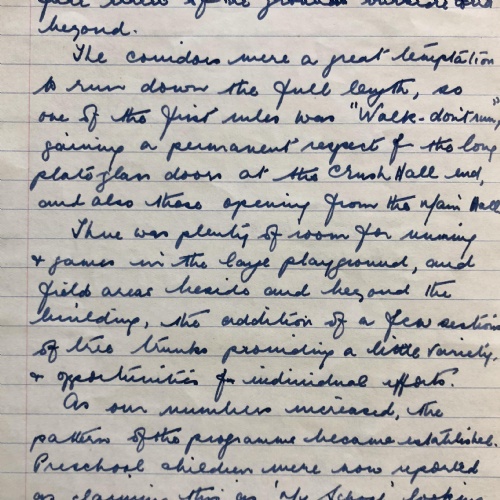 full view of the grounds outside and
beyond.
The corridors were a great temptation
to run down the full length, so
one of the first rules was "Walk-don't run,"
gaining a permanent respect for the long
plate glass doors at the Crush Hall end,
and also those opening from the Main Hall
There was plenty of room for running
& games in the large playground, and
field areas beside and beyond the
building, the addition of a few sections
of tree trunks providing a little variety,
& opportunities for individual efforts.
As our numbers increased, the
pattern of the programme became established.
Preschool children were now reported
as claiming this as 'My School' looking